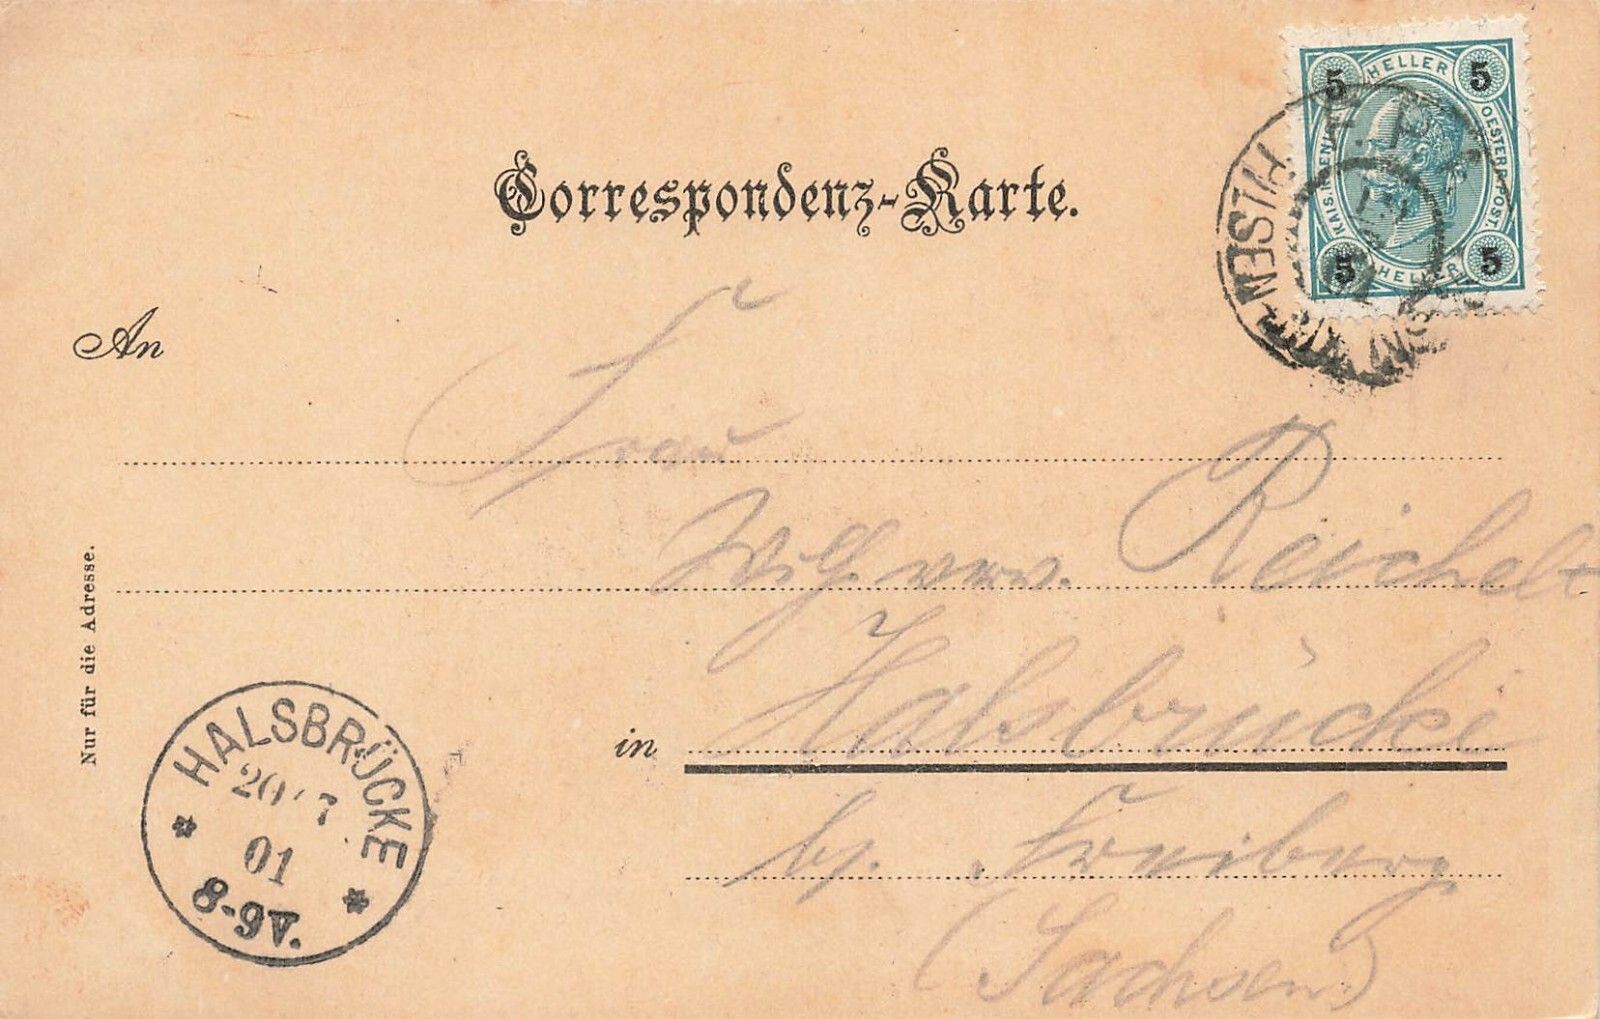 Correspondenz-Karte.
5 HELLER 5
KAIS. KOENIGL. OESTERR. POST.
5 HELLER 5
An
Frau
Wilh. verw. Reichelt
in Halsbrücke
by. Freiberg
(Sachsen)
Nur für die Adresse.
HALSBRÜCKE
20/7
01
8-9V.